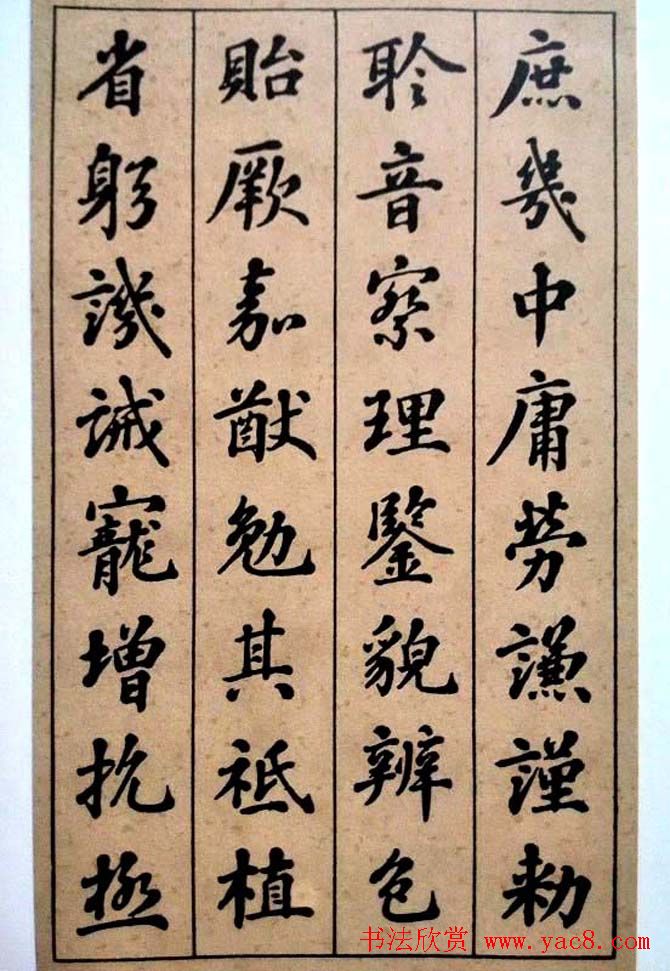 庶幾中庸勞謙謹勑
聆音察理鑒貌辨色
貽厥嘉猷勉其祗植
省躬譏誡寵增抗極
书法欣赏 www.yac8.com